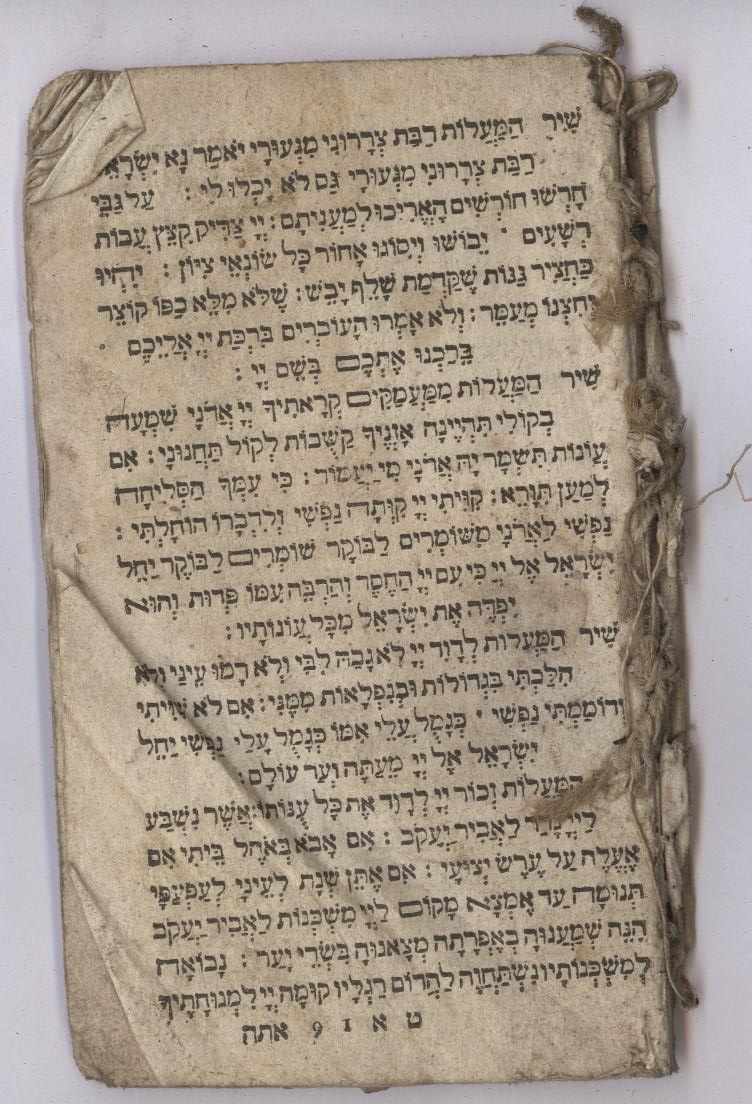 שִׁיר הַמַּעֲלוֹת רַבַּת צְרָרוּנִי מִנְּעוּרָי יֹאמַר נָא יִשְׂרָאֵל
רַבַּת צְרָרוּנִי מִנְּעוּרָי גַּם לֹא יָכְלוּ לִי : עַל גַּבִּי
חָרְשׁוּ חוֹרְשִׁים הֶאֱרִיכוּ לְמַעֲנִיתָם : יְיָ צַדִּיק קִצֵּץ עֲבוֹת
רְשָׁעִים · יֵבוֹשׁוּ וְיִסּוֹגוּ אָחוֹר כָּל שׂוֹנְאֵי צִיּוֹן : יִהְיוּ
כַּחֲצִיר גַּגּוֹת שֶׁקַּדְמַת שָׁלַף יָבֵשׁ : שֶׁלֹּא מִלֵּא כַפּוֹ קוֹצֵר
וְחִצְנוֹ מְעַמֵּר : וְלֹא אָמְרוּ הָעוֹבְרִים בִּרְכַּת יְיָ אֲלֵיכֶם
בֵּרַכְנוּ אֶתְכֶם בְּשֵׁם יְיָ :
שִׁיר הַמַּעֲלוֹת מִמַּעֲמַקִּים קְרָאתִיךָ יְיָ אֲדֹנָי שִׁמְעָה
בְקוֹלִי תִּהְיֶינָה אָזְנֶיךָ קַשֻּׁבוֹת לְקוֹל תַּחֲנוּנָי : אִם
עֲוֹנוֹת תִּשְׁמָר יָהּ אֲדֹנָי מִי יַעֲמוֹד : כִּי עִמְּךָ הַסְּלִיחָה
לְמַעַן תִּוָּרֵא : קִוִּיתִי יְיָ קִוְּתָה נַפְשִׁי וְלִדְבָרוֹ הוֹחָלְתִּי :
נַפְשִׁי לַאדֹנָי מִשּׁוֹמְרִים לַבּוֹקֶר שׁוֹמְרִים לַבּוֹקֶר יַחֵל
יִשְׂרָאֵל אֶל יְיָ כִּי עִם יְיָ הַחֶסֶד וְהַרְבֵּה עִמּוֹ פְדוּת וְהוּא
יִפְדֶּה אֶת יִשְׂרָאֵל מִכָּל עֲוֹנוֹתָיו :
שִׁיר הַמַּעֲלוֹת לְדָוִד יְיָ לֹא גָבַהּ לִבִּי וְלֹא רָמוּ עֵינַי וְלֹא
הִלַּכְתִּי בִּגְדוֹלוֹת וּבְנִפְלָאוֹת מִמֶּנִּי : אִם לֹא שִׁוִּיתִי
וְדוֹמַמְתִּי נַפְשִׁי · כְּגָמֻל עֲלֵי אִמּוֹ כַּגָּמֻל עָלַי נַפְשִׁי יַחֵל
יִשְׂרָאֵל אֶל יְיָ מֵעַתָּה וְעַד עוֹלָם :
הַמַּעֲלוֹת זְכוֹר יְיָ לְדָוִד אֶת כָּל עֻנּוֹתוֹ : אֲשֶׁר נִשְׁבַּע
לַיְיָ נָדַר לַאֲבִיר יַעֲקֹב : אִם אָבֹא בְּאֹהֶל בֵּיתִי אִם
אֶעֱלֶה עַל עֶרֶשׂ יְצוּעָי : אִם אֶתֵּן שְׁנַת לְעֵינָי לְעַפְעַפַּי
תְּנוּמָה עַד אֶמְצָא מָקוֹם לַיְיָ מִשְׁכָּנוֹת לַאֲבִיר יַעֲקֹב
הִנֵּה שְׁמַעֲנוּהָ בְאֶפְרָתָה מְצָאנוּהָ בִּשְׂדֵי יָעַר : נָבוֹאָה
לְמִשְׁכְּנוֹתָיו נִשְׁתַּחֲוֶה לַהֲדוֹם רַגְלָיו קוּמָה יְיָ לִמְנוּחָתֶיךָ
ט א 1 9 אתה